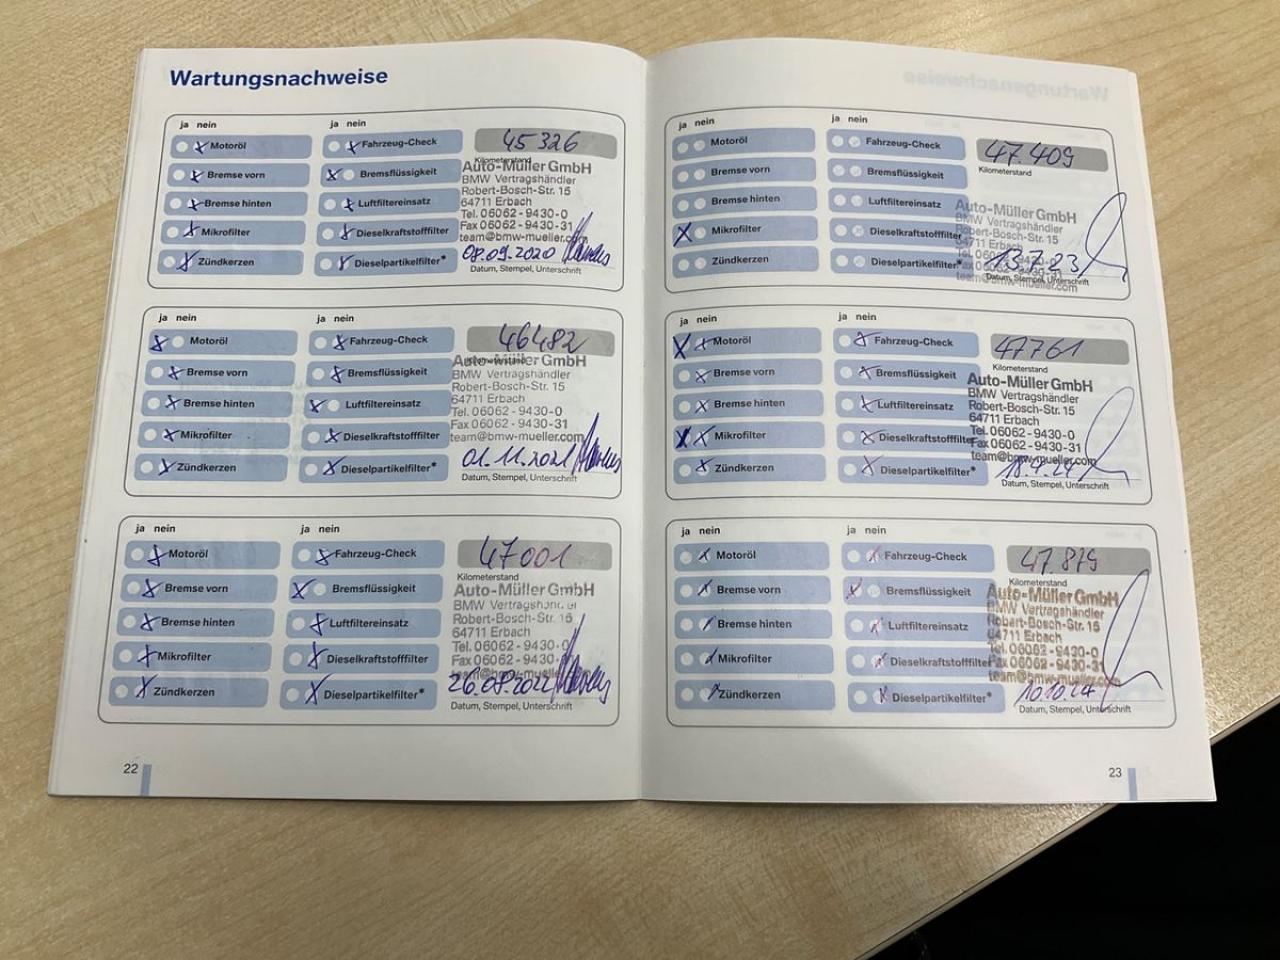 Wartungsnachweise
ja nein
Motoröl
Bremse vorn
Bremse hinten
Mikrofilter
Zündkerzen
ja nein
Fahrzeug-Check
Bremsflüssigkeit
Luftfiltereinsatz
Dieselkraftstofffilter
Dieselpartikelfilter*
45326
Kilometerstand
Auto-Müller GmbH
BMW Vertragshändler
Robert-Bosch-Str. 15
64711 Erbach
Tel. 06062 - 9430-0
Fax 06062 - 9430-31
team@bmw-mueller.com
08.09.2020
Datum, Stempel, Unterschrift
ja nein
Motoröl
Bremse vorn
Bremse hinten
Mikrofilter
Zündkerzen
ja nein
Fahrzeug-Check
Bremsflüssigkeit
Luftfiltereinsatz
Dieselkraftstofffilter
Dieselpartikelfilter*
46482
Kilometerstand
Auto-Müller GmbH
BMW Vertragshändler
Robert-Bosch-Str. 15
64711 Erbach
Tel. 06062 - 9430-0
Fax 06062 - 9430-31
team@bmw-mueller.com
01.11.2021
Datum, Stempel, Unterschrift
ja nein
Motoröl
Bremse vorn
Bremse hinten
Mikrofilter
Zündkerzen
ja nein
Fahrzeug-Check
Bremsflüssigkeit
Luftfiltereinsatz
Dieselkraftstofffilter
Dieselpartikelfilter*
47001
Kilometerstand
Auto-Müller GmbH
BMW Vertragshändler
Robert-Bosch-Str. 15
64711 Erbach
Tel. 06062 - 9430-0
Fax 06062 - 9430-31
team@bmw-mueller.com
26.08.2022
Datum, Stempel, Unterschrift
22
ja nein
Motoröl
Bremse vorn
Bremse hinten
Mikrofilter
Zündkerzen
ja nein
Fahrzeug-Check
Bremsflüssigkeit
Luftfiltereinsatz
Dieselkraftstofffilter
Dieselpartikelfilter*
47.409
Kilometerstand
Auto-Müller GmbH
BMW Vertragshändler
Robert-Bosch-Str. 15
64711 Erbach
Tel. 06062 - 9430-0
Fax 06062 - 9430-31
team@bmw-mueller.com
13.7.23
Datum, Stempel, Unterschrift
ja nein
Motoröl
Bremse vorn
Bremse hinten
Mikrofilter
Zündkerzen
ja nein
Fahrzeug-Check
Bremsflüssigkeit
Luftfiltereinsatz
Dieselkraftstofffilter
Dieselpartikelfilter*
47761
Kilometerstand
Auto-Müller GmbH
BMW Vertragshändler
Robert-Bosch-Str. 15
64711 Erbach
Tel. 06062 - 9430-0
Fax 06062 - 9430-31
team@bmw-mueller.com
Datum, Stempel, Unterschrift
ja nein
Motoröl
Bremse vorn
Bremse hinten
Mikrofilter
Zündkerzen
ja nein
Fahrzeug-Check
Bremsflüssigkeit
Luftfiltereinsatz
Dieselkraftstofffilter
Dieselpartikelfilter*
47.819
Kilometerstand
Auto-Müller GmbH
BMW Vertragshändler
Robert-Bosch-Str. 15
64711 Erbach
Tel. 06062 - 9430-0
Fax 06062 - 9430-31
team@bmw-mueller.com
10.10.24
Datum, Stempel, Unterschrift
23